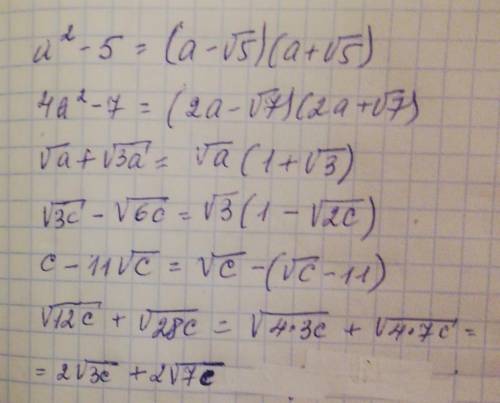 a² - 5 = (a - √5)(a + √5)
4a² - 7 = (2a - √7)(2a + √7)
√a + √3a = √a (1 + √3)
√3c - √6c = √3 (1 - √2c)
c - 11√c = √c - (√c - 11)
√12c + √28c = √4·3c + √4·7c =
= 2√3c + 2√7c